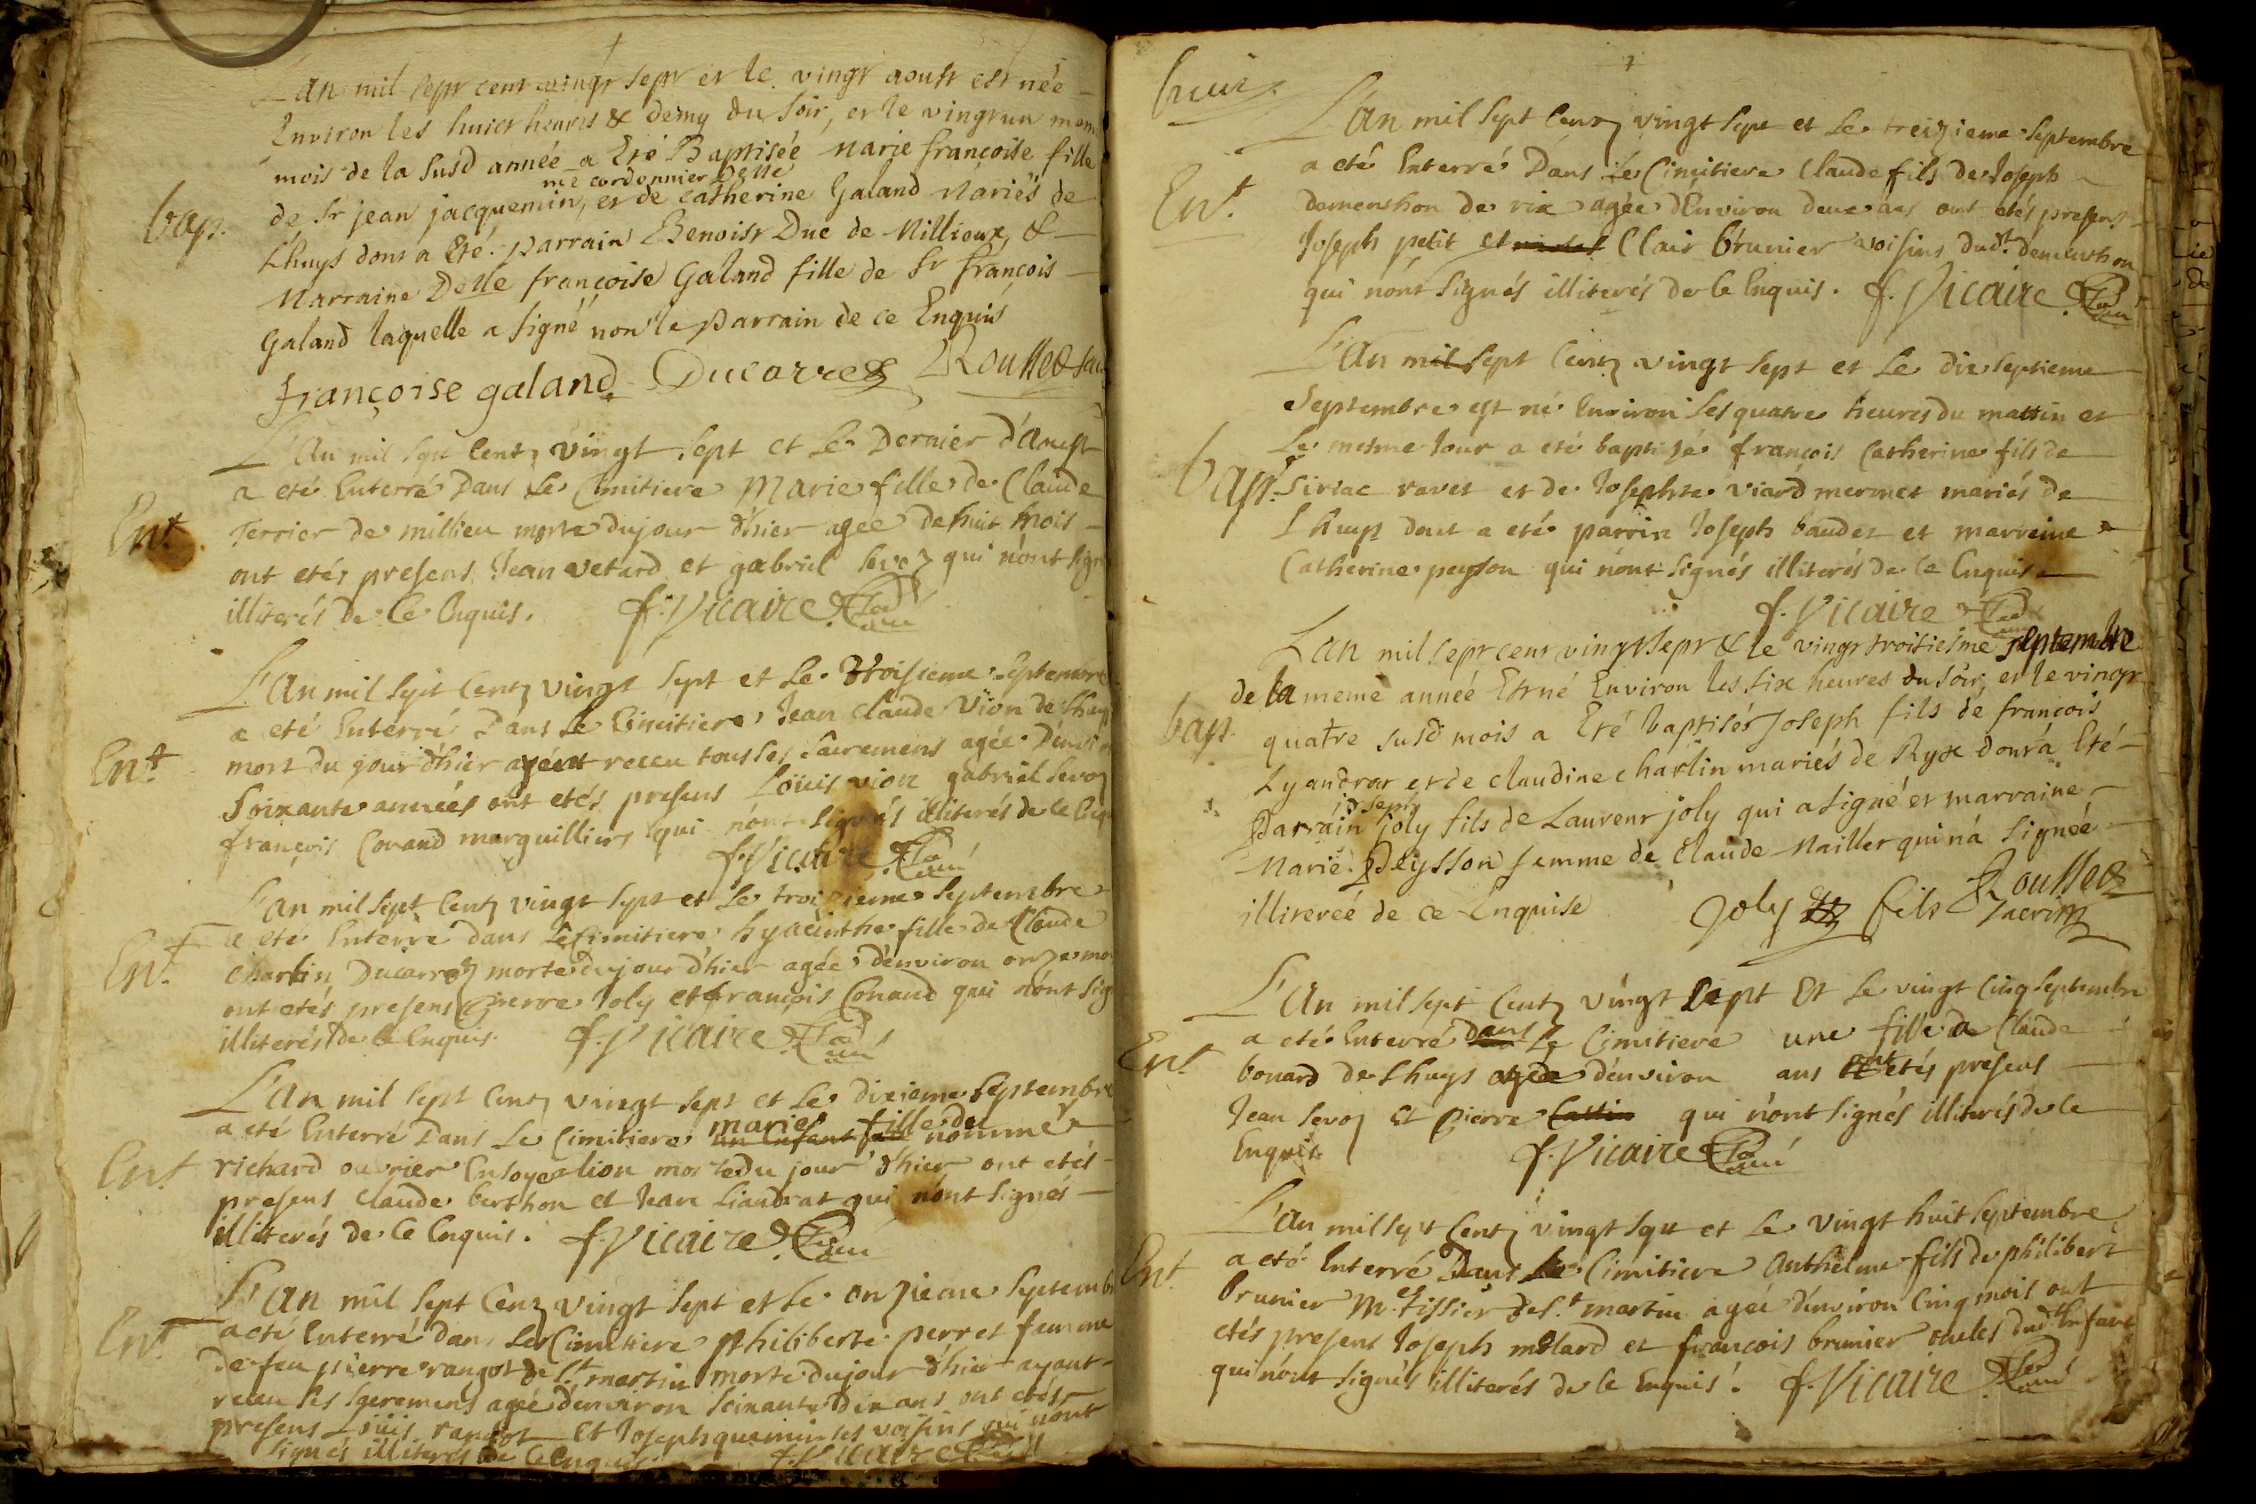 L'an mil sept cent vingt sept et le vingt aoust est née
Environ les huict heures & demy du soir, et le vingt un mem
mois de la susd année a Eté Baptisée Marie françoise fille
me cordonnier Delle
bap. de Sr jean jacquemin, et de catherine Galand Mariés de
Lhuys dont a Eté parrain Benoist Duc de Millieux, &
Marraine Delle françoise Galand fille de Sr françois
Galand laquelle a signé non le parrain de ce Enquis
françoise galand Ducarre Rousset
L'An mil sept Cent vingt sept et Le Dernier d'Aoust
a eté Enterré Dans Le Cimitiere Marie fille de Claude
Ent terrier de millieu morte du jour d'hier agée de huit mois
ont etés presens Jean vetard et gabriel sevoz qui n'ont sign
illiterés de Ce Enquis. f. Vicaire
L'An mil sept Cent vingt sept et Le troisieme septembre
a eté Enterré Dans Le Cimitiere Jean Claude Vion de Lhuys
Ent mort du jour d'hier ayent receu tous les sacremens agée D'envir
soixante années ont etés presens Loüis vion gabriel sevoz
françois Conand marguilliers qui n'ont signés illiterés de Ce Enq
f. Vicaire
L'an mil sept Cent vingt sept et Le troizieme septembre
a eté Enterré dans Le Cimitiere hyacinthe fille de Claude
Ent. Charlin Ducarroz morte du jour d'hier agée d'environ onze mo
ont etés presens Pierre Joly et françois Conand qui n'ont sig
illiterés de Ce Enquis. f. Vicaire
L'An mil sept Cent vingt sept et Le dixieme septembre
marie fille de
a eté Enterré Dans Le Cimitiere un Enfant nommé
Ent richard ouvrier En soye a lion morte du jour d'hier ont etés
presens Claude berthon et Jean Liaudrat qui n'ont signés
illiterés de Ce Enquis. f. Vicaire
L'an mil sept Cent vingt sept et Le onzieme septemb
a eté Enterré Dans Le Cimitiere philiberte perret femme
Ent de feu pierre rangot de St martin morte du jour d'hier ayant
receu ses sacremens agée d'environ soixante Dix ans ont etés
presens Loüis rangot et Joseph quemin ses voisins qui n'ont
signés illiterés de Ce Enquis f. Vicaire
huit
L'An mil sept Cent vingt sept et Le treizieme septembre
a eté Enterré Dans Le Cimitiere Claude fils de Joseph
Ent. demeurthon de rix agée d'Environ deux ans ont etés presens
Joseph petit et Clair brunier voisins dudt. demeurthon
qui n'ont signés illiterés de Ce Enquis. f. Vicaire
L'An mil sept Cent vingt sept et Le dix septieme
septembre est né Environ les quatre heures du mattin et
Le mesme Jour a eté baptisé françois Catherine fils de
bap. Siriac ravet et de Josephte viard mermet mariés de
Lhuys dont a eté parrin Joseph baudet et marreine
Catherine peysson qui n'ont signés illiterés de Ce Enquis
f. Vicaire
Lan mil sept cent vingt sept & le vingt troisiesme septembre
de la meme année Est né Environ les six heures du soir, et le vingt
bap quatre susd mois a Eté baptisés Joseph fils de françois
Lyandrat et de claudine charlin mariés de Ryx dont a Eté
joseph
Parrain joly fils de Laurent joly qui a signé et marraine
Marie Peysson femme de Claude Maillet qui n'a signée
illitereé de ce Enquise Joly fils Rousset
L'An mil sept Cent vingt sept Et Le vingt Cinq septembre
a eté Enterré Dans Le Cimitiere une fille de Claude
Ent bonard de Lhuys agée d'environ ans ont etés presens
Jean sevoz et Pierre Cattin qui n'ont signés illiterés de Ce
Enquis. f. Vicaire
L'An mil sept Cent vingt sept et Le vingt huit septembre
a eté Enterré Dans Le Cimitiere Anthelme fils de philibert
Ent. brunier Me tissier de St martin agée d'environ Cinq mois ont
etés presens Joseph molard et françois brunier oncles dudt. Enfant
qui n'ont signés illiterés de Ce Enquis. f. Vicaire